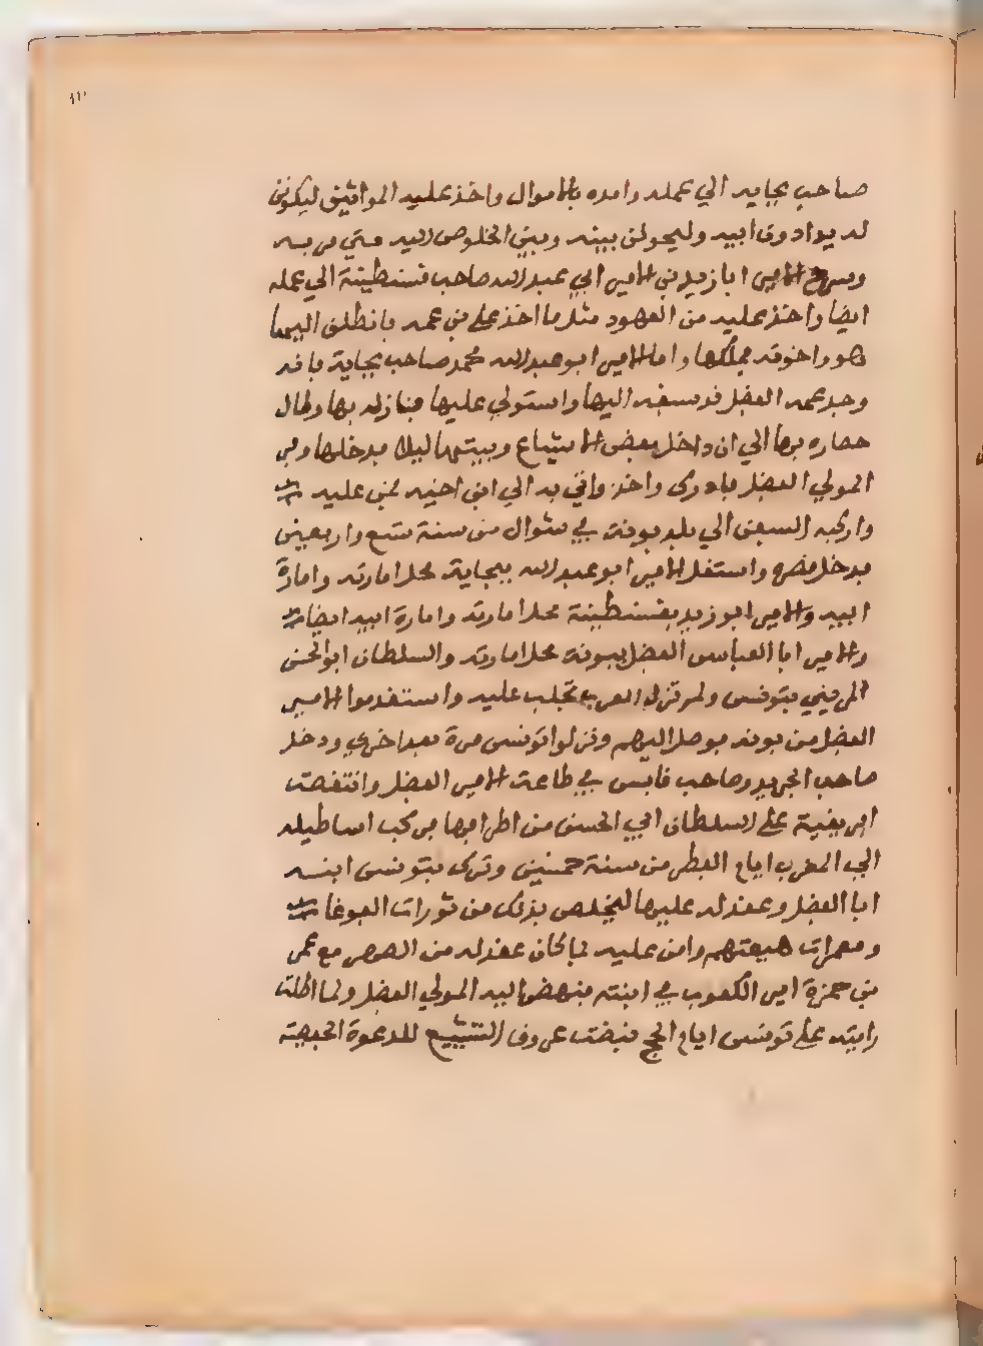 صاحب بجاية الي عمله وامده بالاموال واخذ عليه المواثيق ليكونن
له يدا دون ابيه وليحولن بينه وبين الخلوص اليه متي مر به
وسرح الامير ابا زيد بن الامير ابي عبد الله صاحب قسنطينة الي عمله
ايضا واخذ عليه من العهود مثل ما اخذ علي بن عمه فانطلق اليها
هو واخوته فملكها واما الامير ابو عبد الله محمد صاحب بجاية فانه
وجد عمه الفضل قد سبقه اليها واستولي عليها فنازله بها وطال
حصاره بها الي ان داخل بعض الاشياع وبيتها ليلا فدخلها وفر
المولي الفضل فادرك واخذ واتي به الي ابن اخيه فمن عليه
واركبه السفن الي بلد بونة في شوال من سنة تسع واربعين
فدخل قصره واستقل الامير ابو عبد الله ببجاية محل امارته وامارة
ابيه والامير ابو زيد بقسنطينة محل امارته وامارة ابيه ايضا
والامير ابا العباس الفضل ببونة محل امارته والسلطان ابو الحسن
المريني بتونس ولم تزل العرب تجلب عليه واستقدموا الامير
الفضل من بونه فوصل اليهم ونزلوا تونس مرة بعد اخري ودخل
صاحب الجريد وصاحب قابس في طاعة الامير الفضل وانتقضت
افريقية علي السلطان ابي الحسن من اطرافها فركب اساطيله
الي المغرب ايام الفطر من سنة خمسين وترك بتونس ابنه
ابا الفضل وعقد له عليها ليخلص بذلك من ثورات الغوغا
ومعرات هيعتهم وامن عليه لما كان عقد له من الصهر مع عمر
بن حمزة امير الكعوب في ابنته فنهض اليه المولي الفضل ولما اطلت
رايته علي تونس ايام الحج فنبضت عروق التشيع للدعوة الحفصية